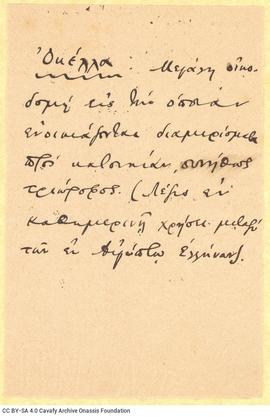 Ὀκέλλα: Μεγάλη οἰκο-
δομὴ εἰς τὴν ὁποίαν
ἐνοικιάζονται διαμερίσματα
πρὸς κατοικίαν, συνήθως
τριώροφος. (Λέξις ἐν
καθημερινῇ χρήσει μεταξὺ
τῶν ἐν Αἰγύπτῳ Ἑλλήνων).
CC BY-SA 4.0 Cavafy Archive Onassis Foundation